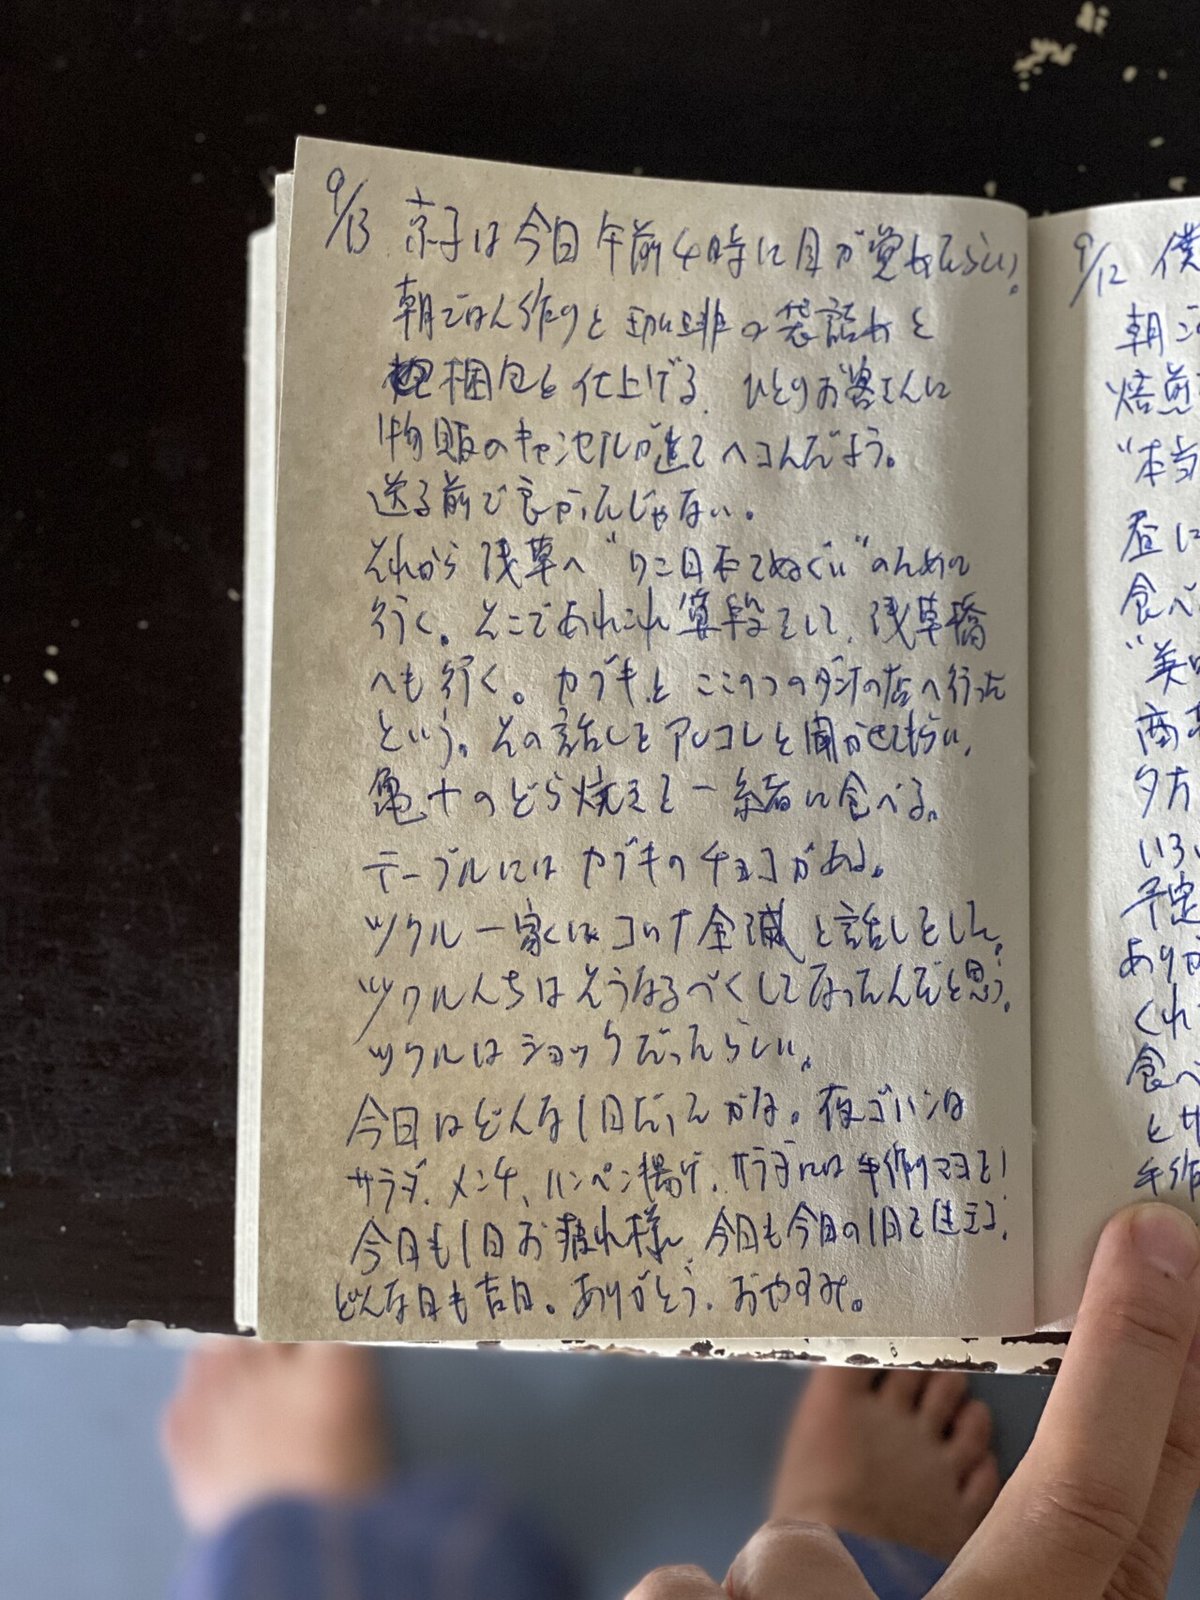 9/13 京子は今日午前4時に目が覚めたらしい。
朝ごはん作りと珈琲の袋詰めと
梱包を仕上げる。ひとりお客さんに
物販のキャンセルが出てヘコんだよう。
送る前で良かったんじゃない。
それから浅草へ"ワニ日本てぬぐい"のために
行く。そこであれこれ算段をして、浅草橋
へも行く。カブキと ここのつのダンナの店へ行った
という。その話しをアレコレと聞かせてもらい、
亀十のどら焼きを一緒に食べる。
テーブルにはカブキのチョコがある。
ツクル一家はコロナ全滅と話しをした。
ツクルんちはそうなるべくしてなったんだと思う。
ツクルはショックだったらしい。
今日はどんな1日だったかな。夜ゴハンは
サラダ、メンチ、ハンペン揚げ、サラダには手作りマヨを!
今日も1日お疲れ様、今日も今日の1日を
どんな日も吉日。ありがとう、おやすみ。
9/12 僕
朝ご
焙煎
"本当
昼に
食べ
"英
商
夕方
いろい
予定
ありが
くれ
食べ
とサ
手作